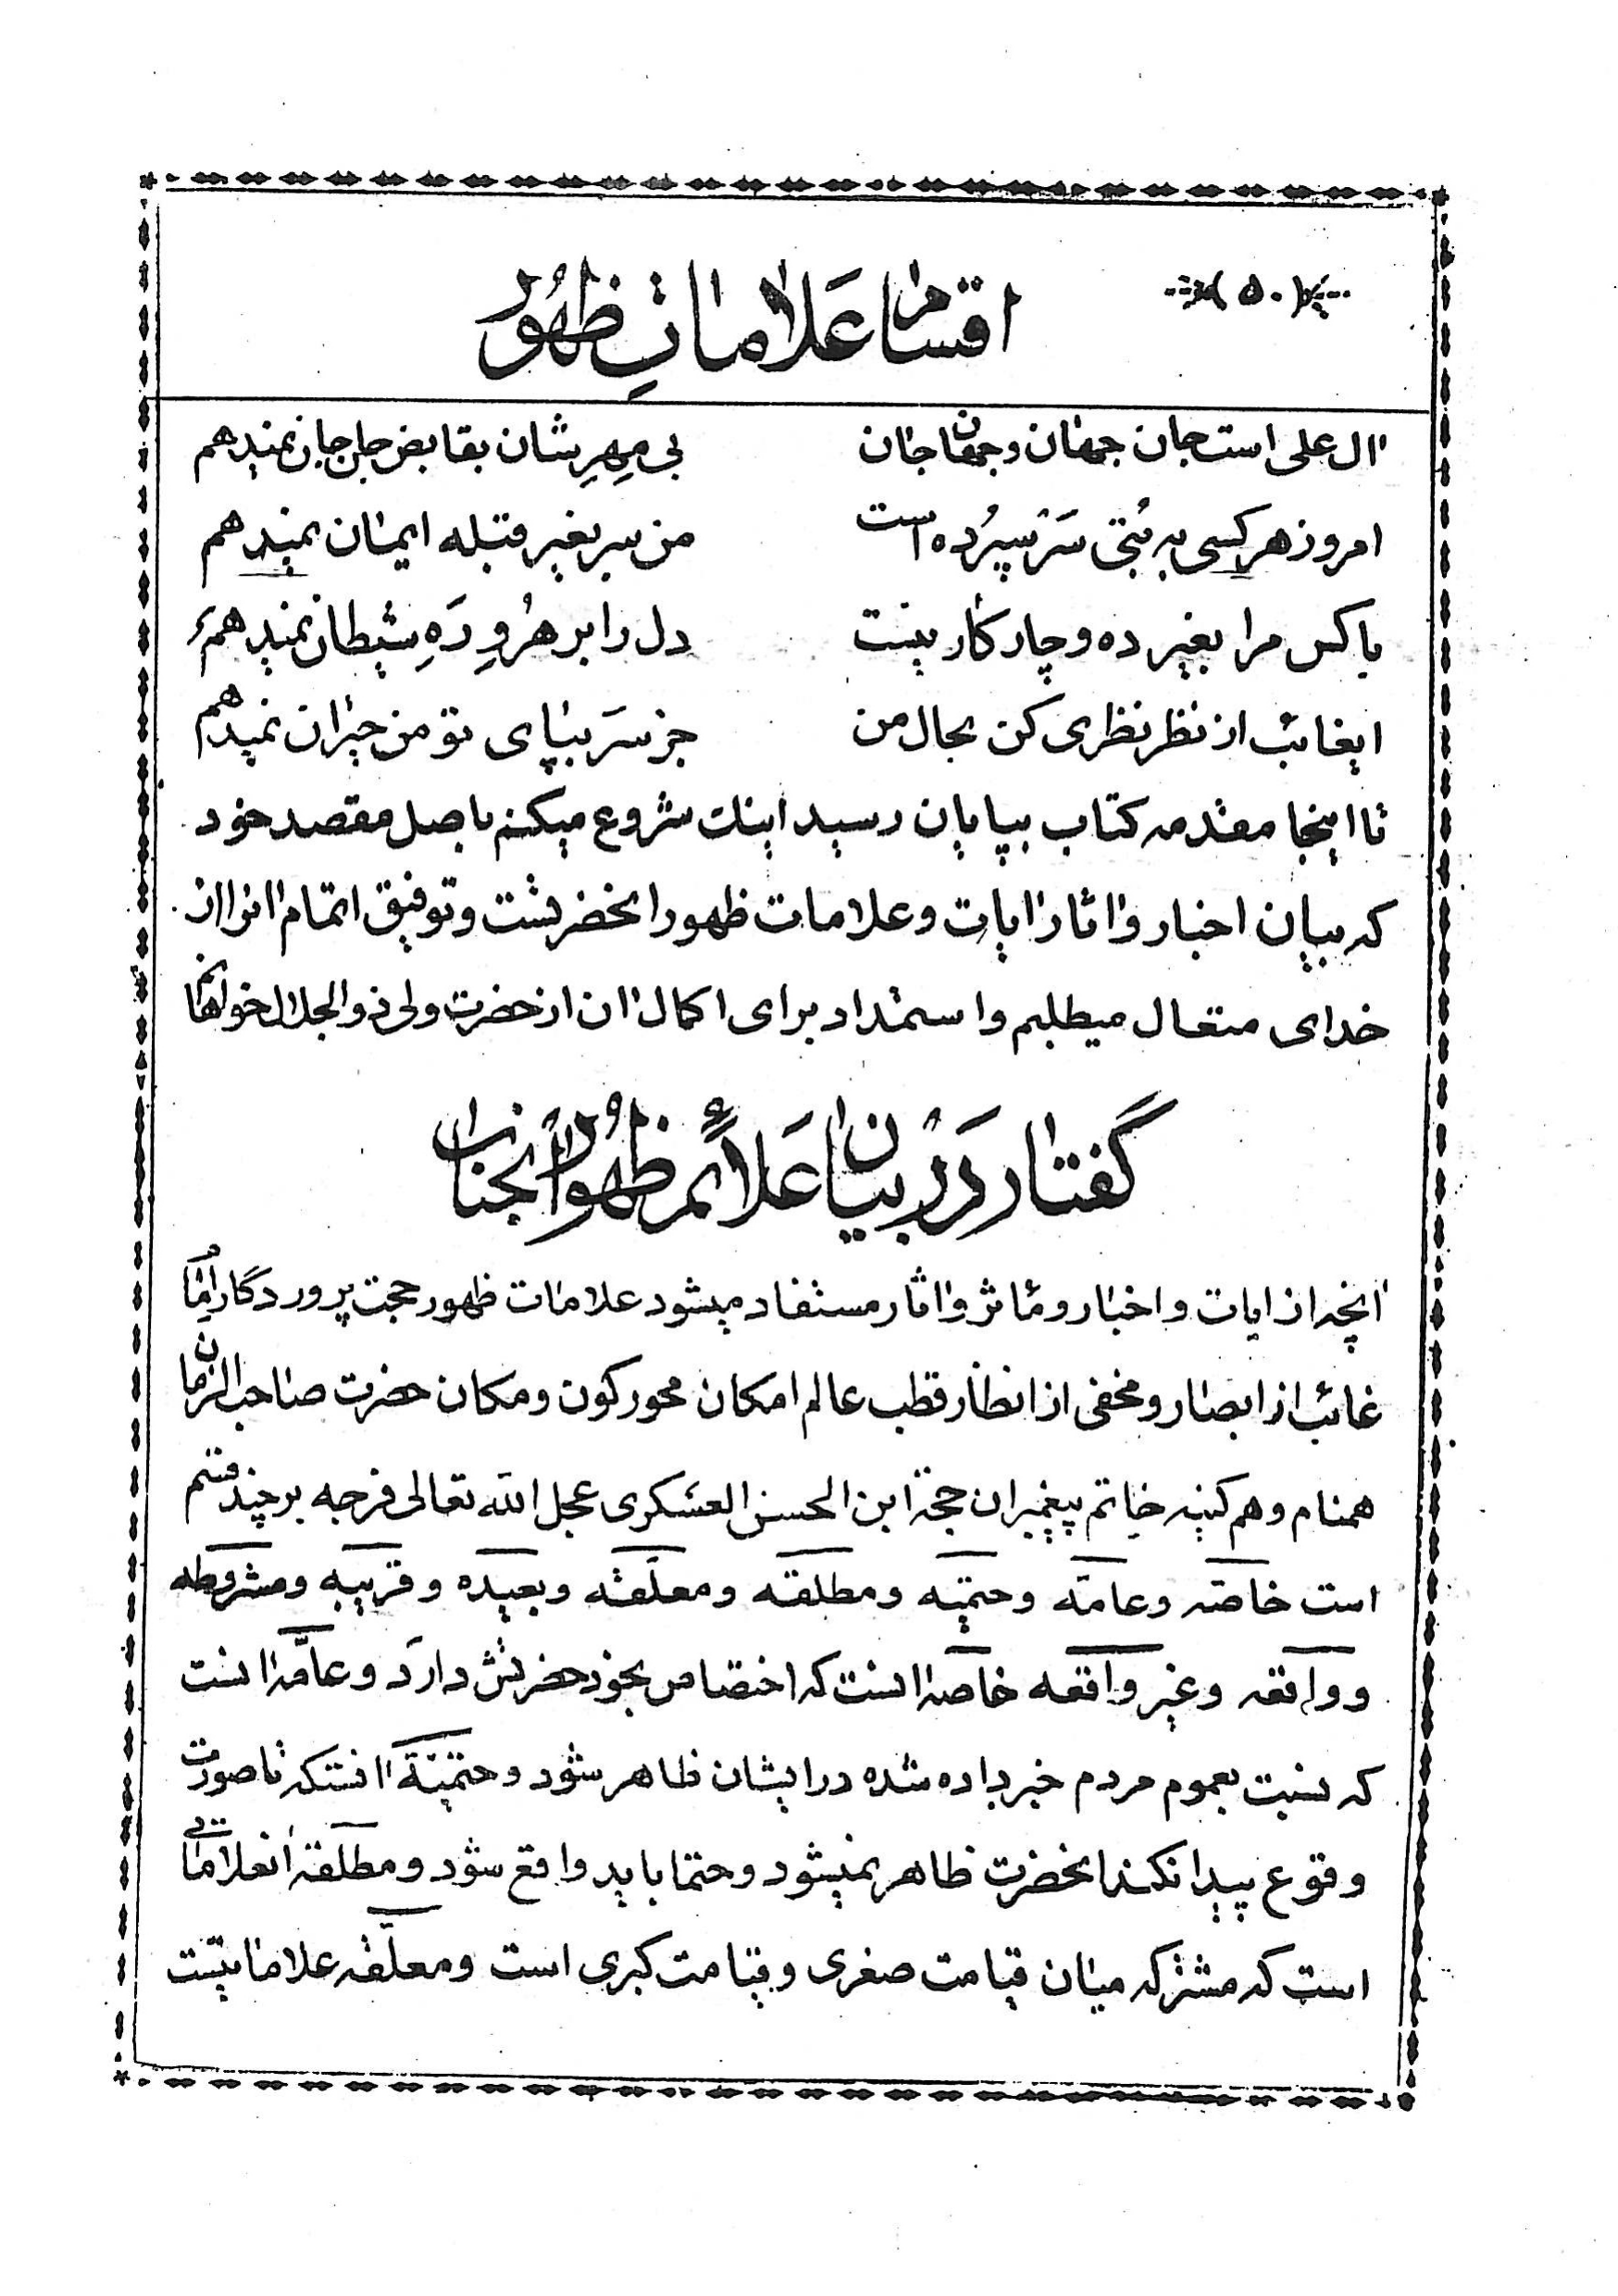 (۵۰)
اقسام علامات ظهور
ال علی است جان جهان و جهان جان بی مِهرِشان بقابض جان جان نمیدهم
امروز هر کسی به بُتی سَر سپُرده است من سر بغیر قبله ایمان نمیدهم
با کس مرا بغیر ده و چار کار نیست دل را بر هرُوِ رَهِ شیطان نمیدهم
ایغائب از نظر نظری کن بحال من جز سَر بپای تو من حیران نمیدهم
تا اینجا مقدمه کتاب بپایان رسید اینک شروع میکنم باصل مقصد خود
که بیان اخبار و اثار و ایات و علامات ظهور انحضرتست و توفیق اتمام انرا از
خدای متعال میطلبم و استمداد برای اکمال ان از حضرت ولی ذوالجلال خواهانم
گفتار دَر بیان عَلائم ظهُور انجناب
انچه از ایات و اخبار و مٵثر و اثار مستفاد میشود علامات ظهور حجت پروردگار امام
غائب از ابصار و مخفی از انظار قطب عالم امکان محور کون و مکان حضرت صاحب الزمان
همنام و هم کنیه خاتم پیغمبران حجة ابن الحسن العسکری عجل الله تعالی فرجه بر چند قسم
است خاصّه و عامّه و حتمیّه و مطلقه و معلّقه و بعیده و قریبه و مشروطه
و واقعه و غیر واقعه خاصّه انست که اختصاص بخود حضرتش دارَد و عامّه انست
که نسبت بعموم مردم خبر داده شده در ایشان ظاهر شود و حتمیّة انستکه تا صورت
وقوع پیدا نکند انحضرت ظاهر نمیشود و حتما باید واقع شود و مطلقه انعلاماتی
است که مشترکه میان قیامت صغری و قیامت کبری است و معلّقه علاماتیست